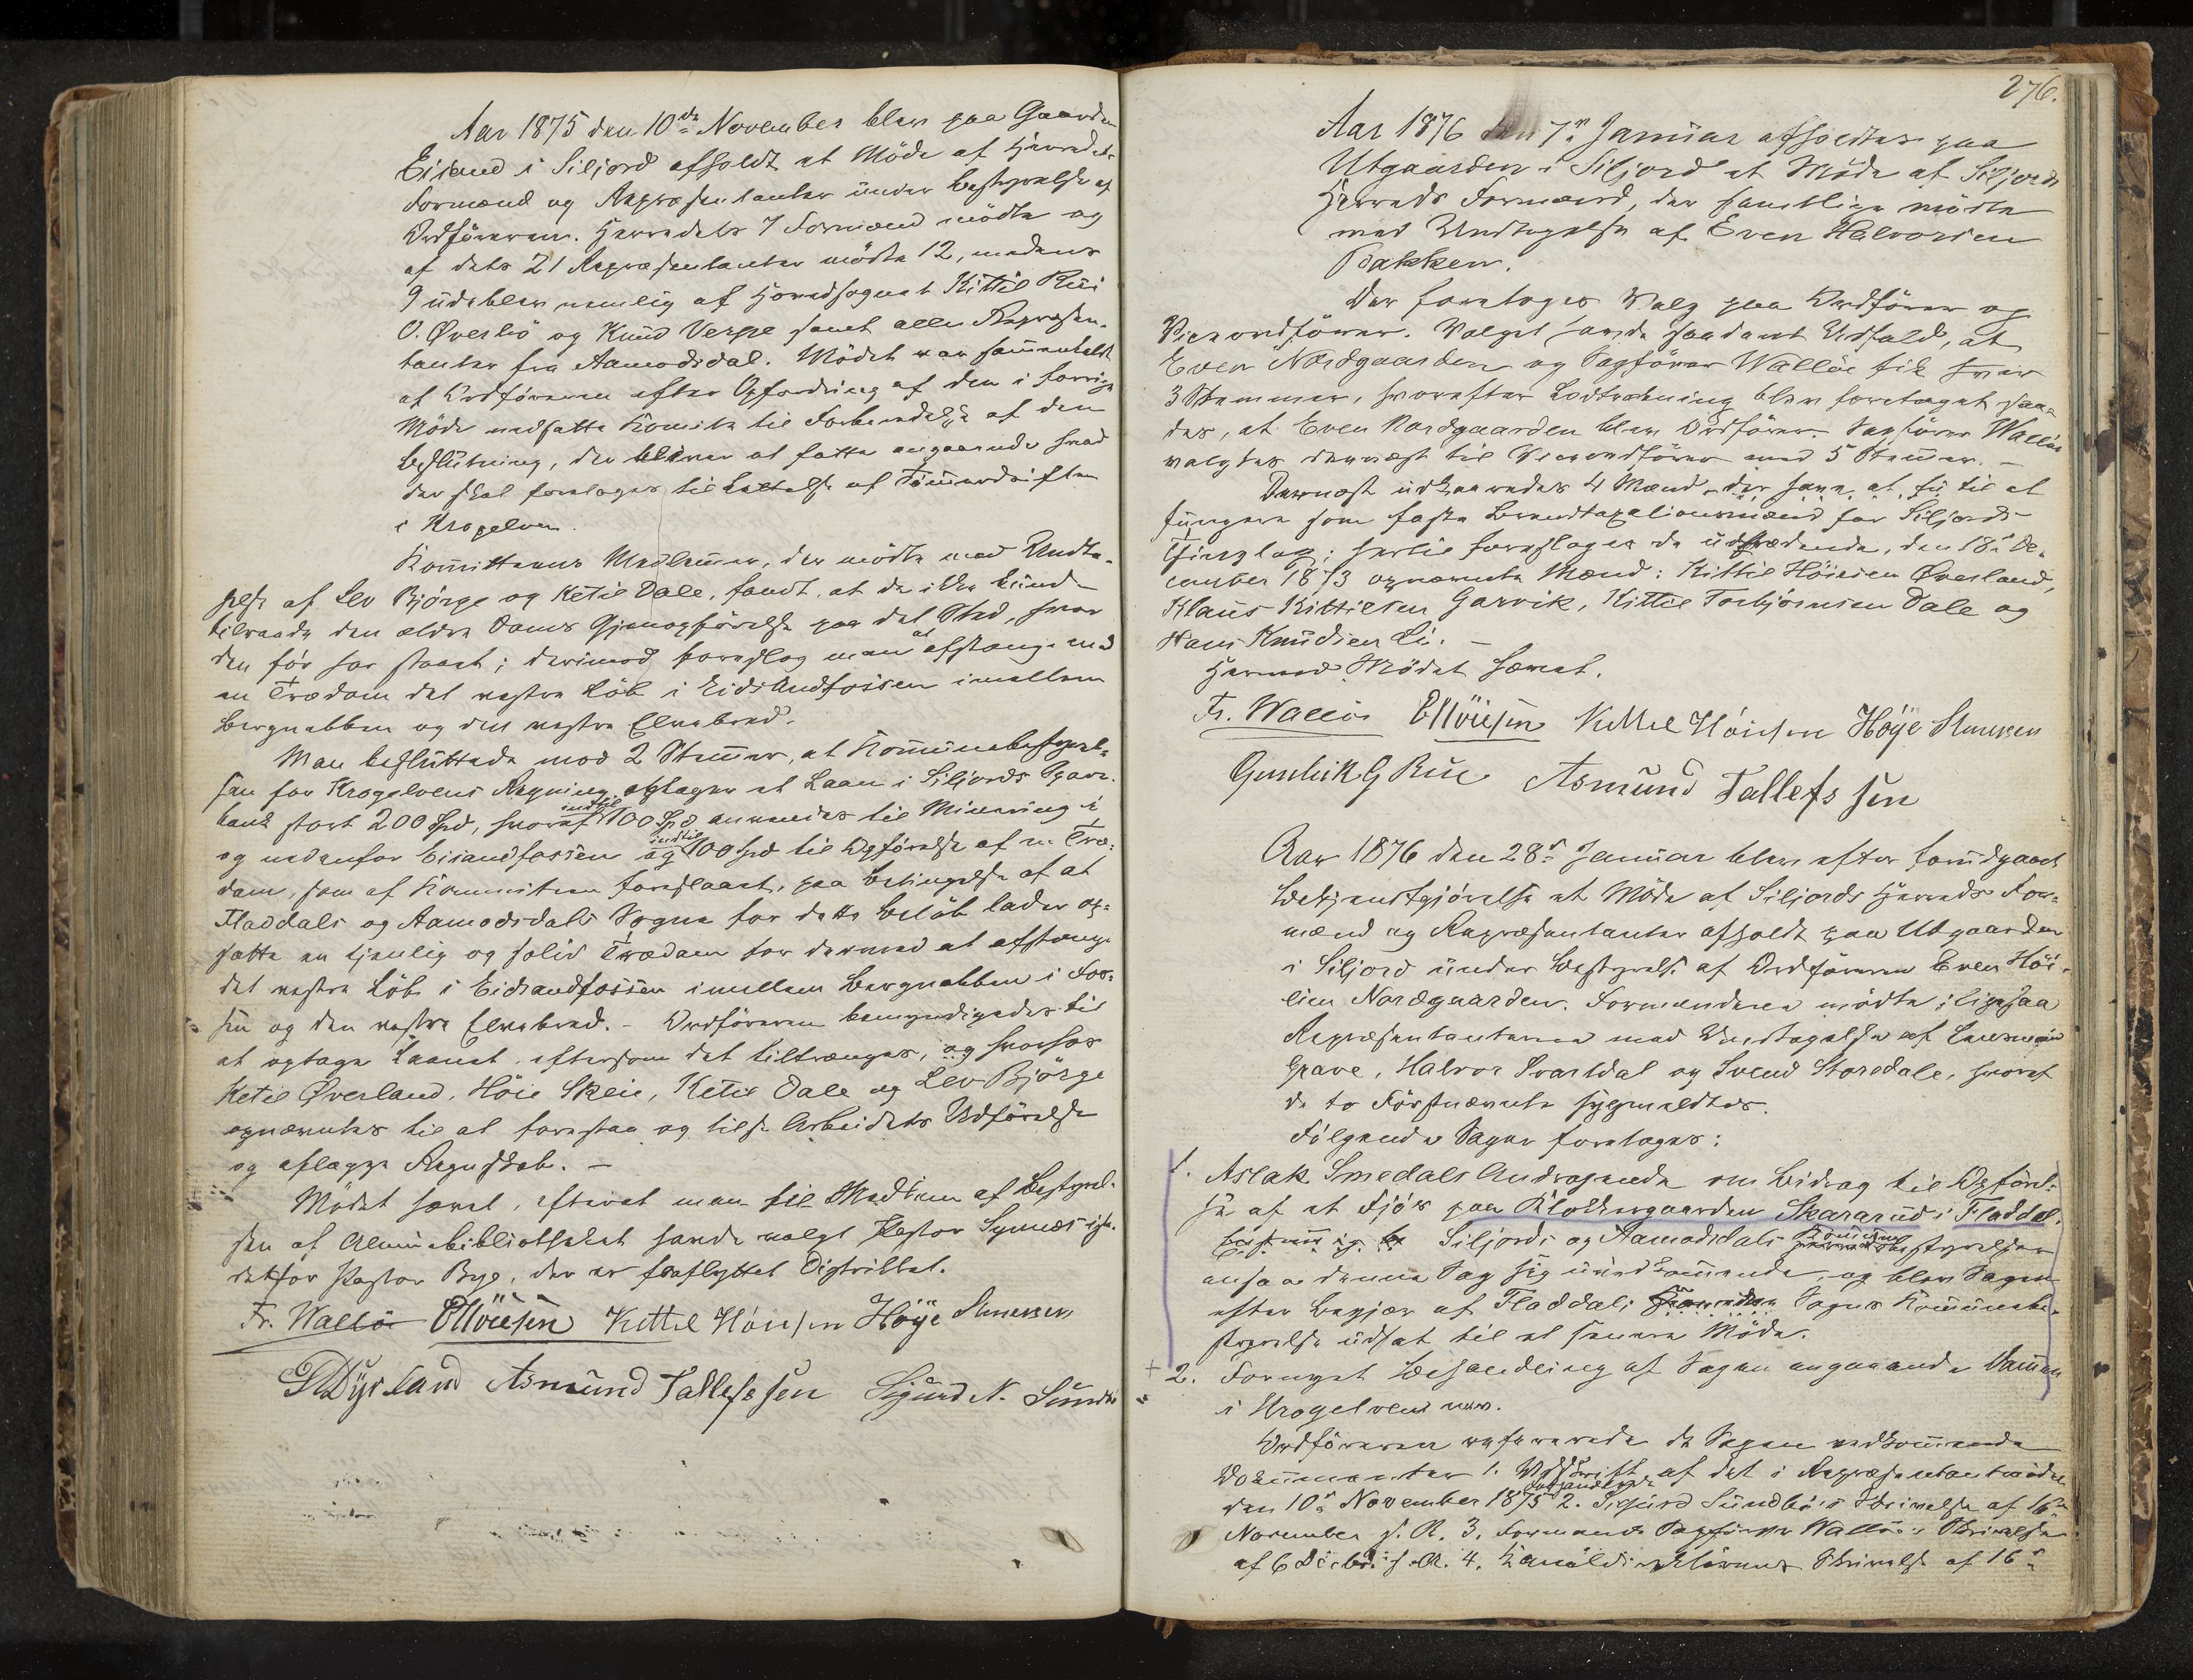 Aar 1875 den 10de November blev paa Gaarden
Eisand i Siljord afholdt et Möde af Herredets
Formænd og Repræsentanter under Bestyrelse af
Ordföreren. Herredets 7 Formænd mödte og
af dets 21 Repræsentanter mödte 12, medens
9 udeblev nemlig af Hovedsognet Kittil Rui
O. Øverbö og Knud Verpe samt alle Repræsen-
tanter fra Aamodsdal. Mödet var sammenkaldt
af Ordföreren efter Opfordring af den i forrige
Möde nedsatte Komite til Forberedelse af den
Beslutning, der bliver at fatte angaaende hvad
der skal foretages til Lettelse af Tömmerdriften
i Kropelven.
Komitteens Medlemmer, der mödte med Undta-
gelse af Lev Bjørge og Ketil Dale, fandt, at de ikke kunde
tilraade den ældre Dams Gjenopförelse paa det Sted, hvor
den för har staaet; derimod foreslog man at afstænge med
en Trædam det vestre Löb i Eidsandfossen imellem
Bergnabben og den vestre Elvebred.
Man besluttede mod 2 Stemmer, at Kommunebestyrel-
sen for Krogelvens Regning optager et Laan i Siljords Spare-
bank stort 200 Spd, hvoraf indtil 100 Spd anvendes til Minering i
og nedenfor Eisandfossen og indtil 100 Spd til Opförelse af en Træ-
dam, som af Kommiteen foreslaaet, paa Betingelse af at
Fladdals og Aamodsdals Sogne for dette Belöb lader op-
sætte en tjenlig og solid Trædam for dermed at afstænge
det vestre Löb i Eidsandfossen imellem Bergnabben i Fos-
sen og den vestre Elvebred. - Ordföreren bemyndigedes til
at optage Laanet eftersom det tiltrænges, og hvorhos
Ketil Øverland, Höie Skeie, Ketil Dale og Lev Bjørge
opnævntes til at forestaa og tilse Arbeidets Udförelse
og aflægge Regnskab. -
Mödet hævet, efterat man til Medlem af Bestyrel-
sen af Almuebibliotheket havde valgt Pastor Synnes iste-
detfor Pastor Bye, der er fraflyttet Distriktet.
Fr. Wallöe EHöiesen Kittel Höiesen Höÿe
Asmund Tallefssen Sigurd N. Sundbö
276.
Aar 1876 den 7de Januar afholdtes paa
Utgaarden i Siljord et Möde af Siljords
Herreds Formænd, der samtlige mödte
med Undtagelse af Even Halvorsen
Bakken.
Der foretoges Valg paa Ordförer og
Viceordförer. Valget havde saadant Udfald, at
Even Nordgaarden og Sagförer Wallöe fik hver
3 Stemmer, hvorefter Lodtrækning blev foretaget saa-
des, at Even Nordgaarden blev Ordförer. Sagförer Wallöe
valgtes dernæst til Viceordförer med 5 Stemmer. -
Dernæst udkaaredes 4 Mænd, der have at til at
fungere som faste Brandtaxationsmænd for Siljords
Thinglag; hertil foresloges de udtrædende, den 18de De-
cember 1873 opnævnte Mænd: Kittil Höiesen Øverland,
Klaus Kittilsen Garvik, Kittil Torbjörnsen Dale og
Hans Knudsen Li. -
Hermed Mödet hævet.
Fr. Wallöe EHöiesen Kittel Höiesen Höÿe
Gunleik G Rue Asmund Tallefssen
Aar 1876 den 28de Januar blev efter forudgaaet
Bekjendtgjörelse et Möde af Siljords Herreds For-
mænd og Repræsentanter afholdt paa Utgaarden
i Siljord under Bestyrelse af Ordföreren Even Höi-
esen Nordgaarden. Formændene mödte; ligesaa
Repræsentanterne med Undtagelse af Lensmand
Grave, Halvor Svartdal og Svend Storedale, hvoraf
de to Förstnævnte sygmeldtes.
Fölgende Sager foretoges:
1. Aslak Smedals Andragende om Bidrag til Opförel-
se af et Fjös paa Klokkergaarden Skararud i Fladdal.
Siljords og Aamodsdals Kommunebestyrelser
ansaa denne Sag sig uvedkommende, og blev Sagen
efter Begjær af Fladdals Sogns Kommunebe-
styrelse udsat til et senere Möde.
+ 2. Fornyet Behandling af Sagen angaaende Dammen
i Krogelven mm.
Ordföreren refererede de Sagen vedkommende
Dokumenter 1. Udskrift af det i Repræsentantmödet
den 10de November 1875 Forhandlede 2. Sigurd Sundbö's Skrivelse af 16de
November s. A. 3. Formand Sagförer Wallöe's Skrivelse
af 6 Decbr. s. A. 4. Kanaldirektörens Skrivelse af 16de